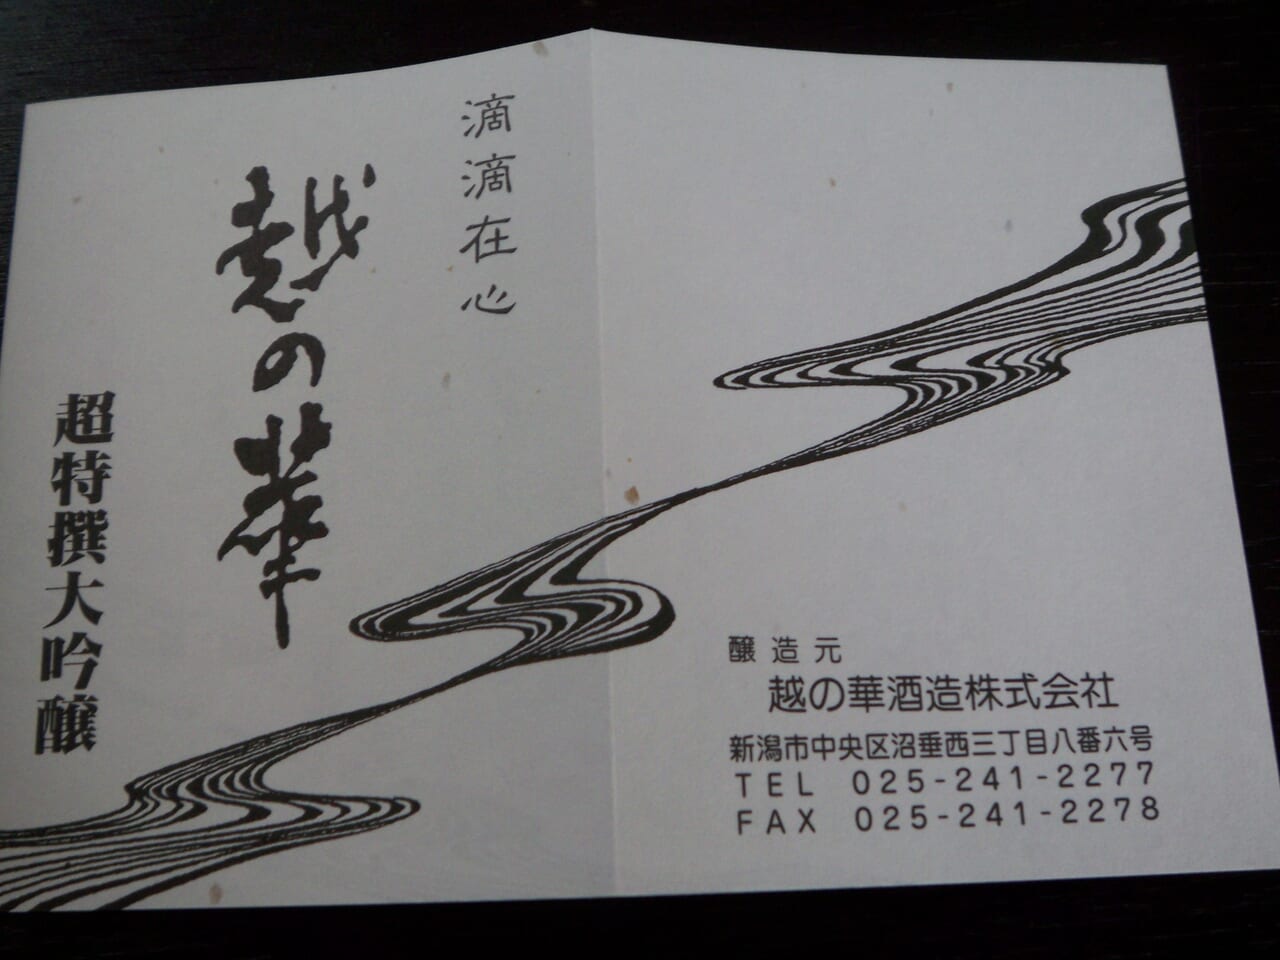 滴滴在心
越の華
超特撰大吟醸
醸造元
越の華酒造株式会社
新潟市中央区沼垂西三丁目八番六号
TEL 025-241-2277
FAX 025-241-2278